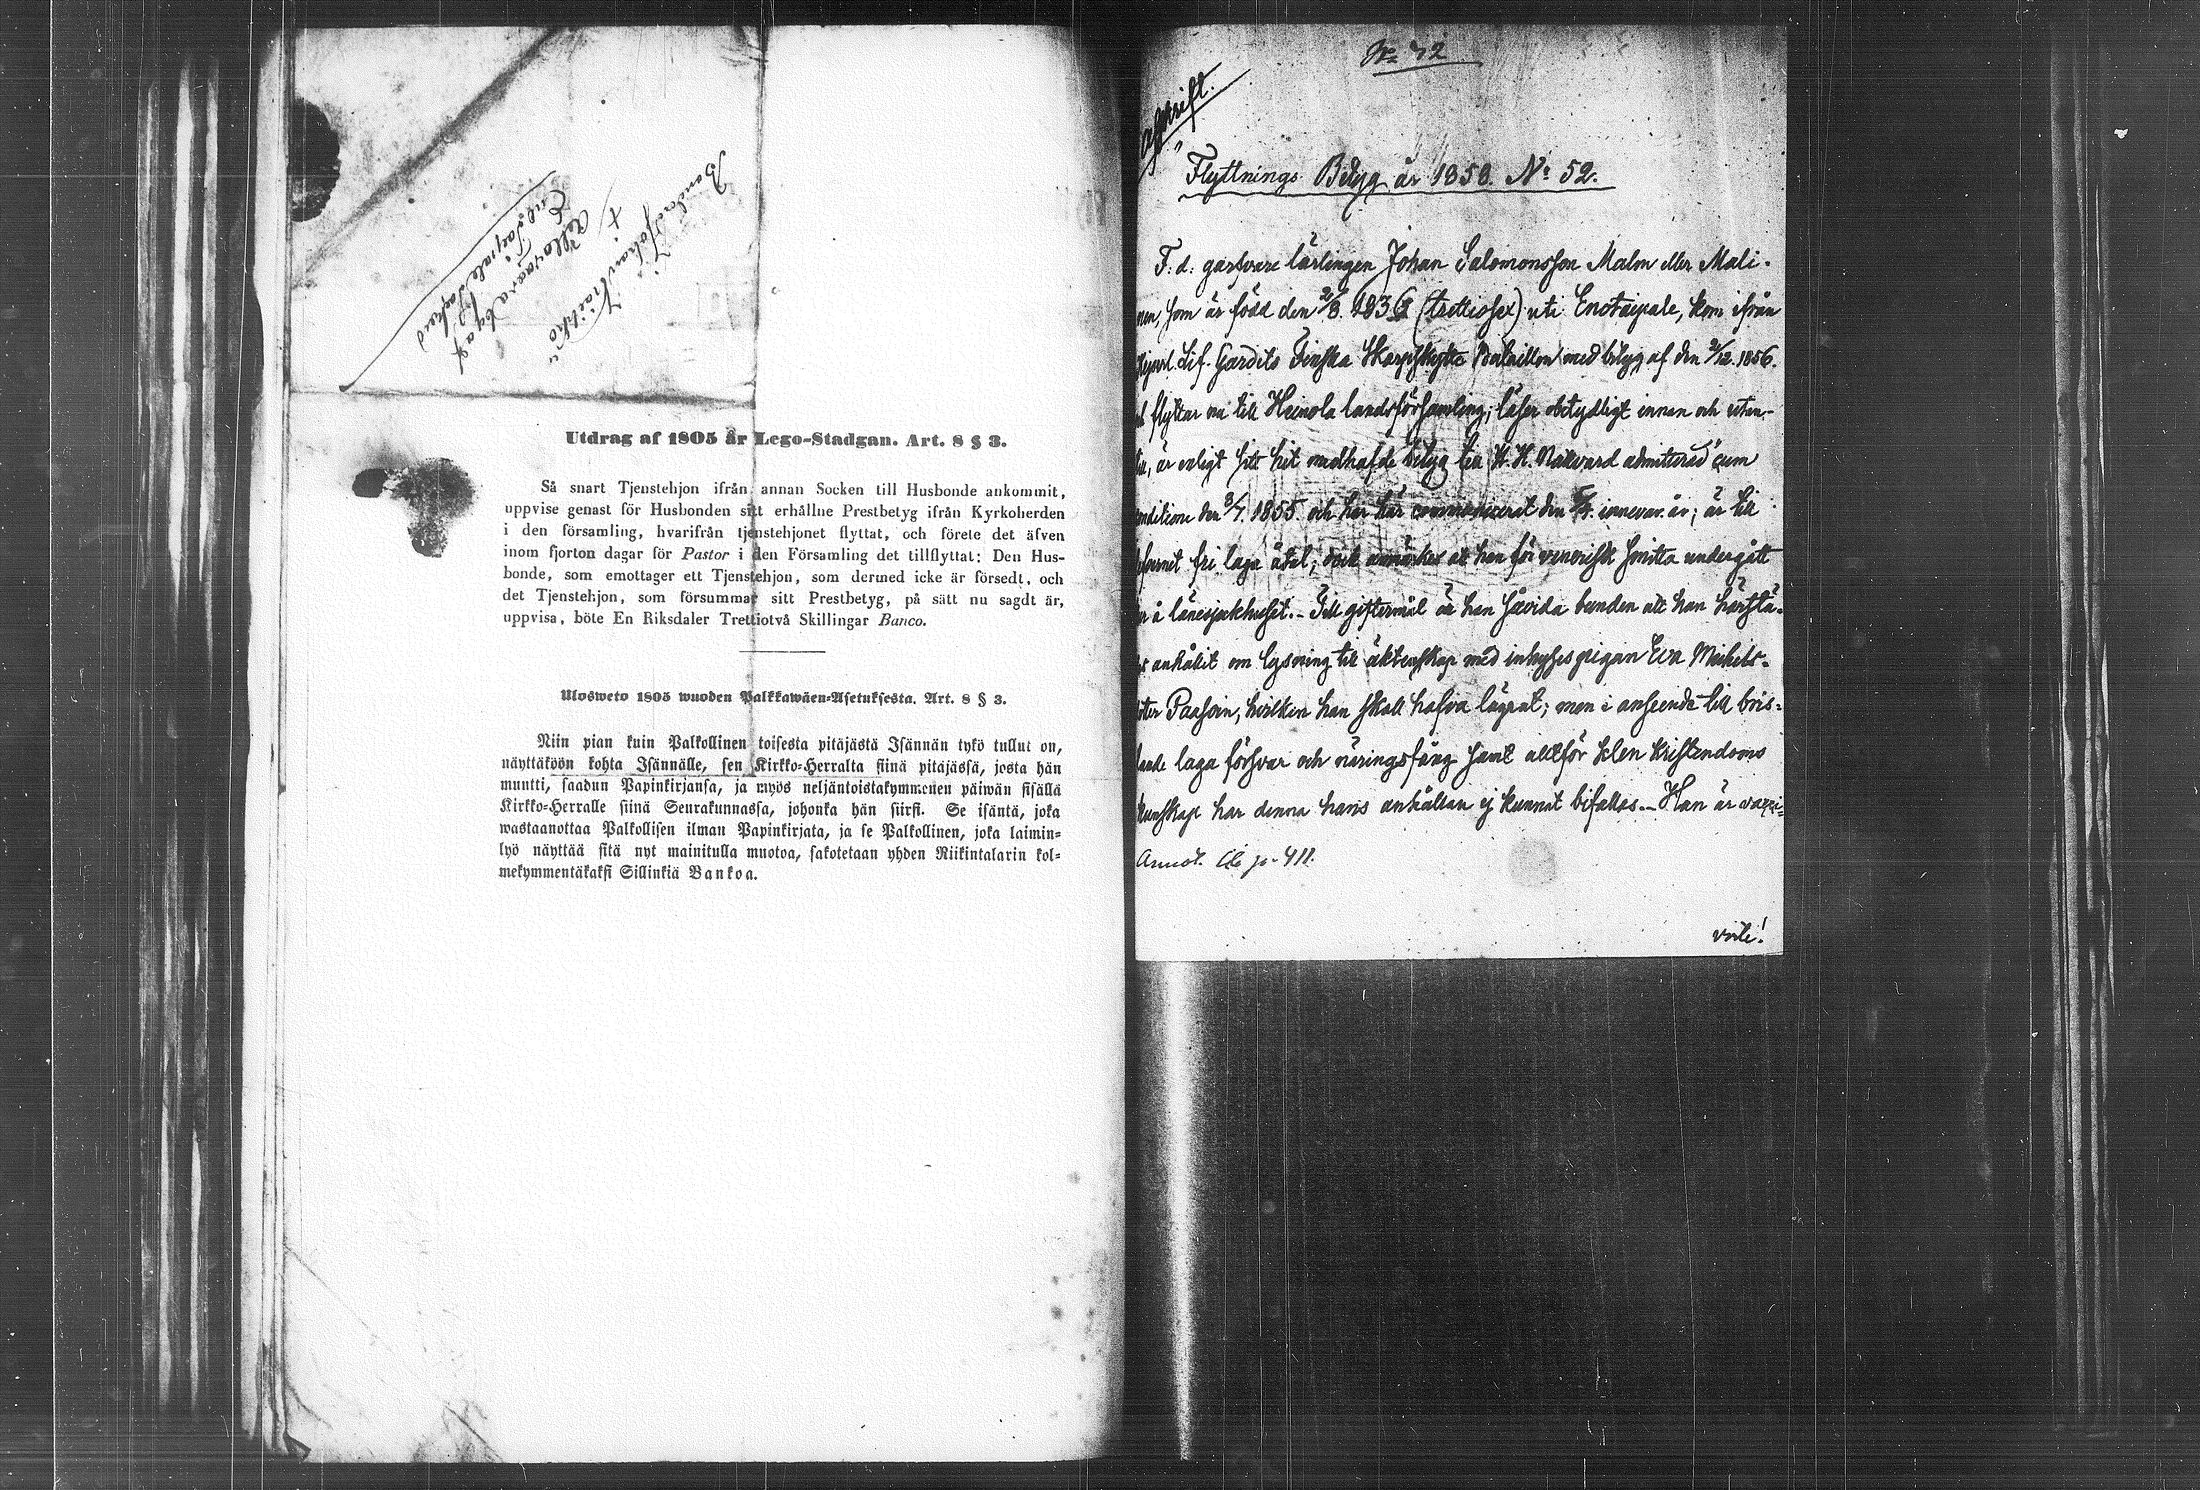 Bonden Johan Kaikko
i
t.
Källovaara by af
Enotaipale Sockend
Utdrag af 1805 år Lego-Stadgan. Art. 8 § 3.
Så snart Tjenstehjon ifrån annan Socken till Husbonde ankommit,
uppvise genast för Husbonden sitt erhållne Prestbetyg ifrån Kyrkoherden
i den församling, hvarifrån tjenstehjonet flyttat, och förete det äfven
inom fjorton dagar för Pastor i den Församling det tillflyttat: Den Hus-
bonde, som emottager ett Tjenstehjon, som dermed icke är försedt, och
det Tjenstehjon, som försummar sitt Prestbetyg, på sätt nu sagdt är,
uppvisa, böte En Riksdaler Trettiotvå Skillingar Banco.
Ulosweto 1805 wuoden Palkkawäen-Asetuksesta. Art. 8 § 3.
Niin pian kuin Palkollinen toisesta pitäjästä Isännän tykö tullut on,
näyttäköön kohta Isännälle, sen Kirkko-Herralta siinä pitäjässä, josta hän
muutti, saadun Papinkirjansa, ja myös neljäntoistakymmenen päiwän sisällä
Kirkko-Herralle siinä Seurakunnassa, johonka hän siirsi. Se isäntä, joka
wastaanottaa Palkollisen ilman Papinkirjata, ja se Palkollinen, joka laimin-
lyö näyttää sitä nyt mainitulla muotoa, sakotetaan yhden Riikintalarin kol-
mekymmentäkaksi Sillinkiä Bankoa.
No 42
Afskrift.
Flyttnings Betyg år 1858. No 52.
F: d: garfvare lärlingen Johan Salomonsson Malm eller Mali-
nen, som är född den 2/8. 1836 (trettiosex) uti Enotaipale, kom ifrån
Kejserl. Lif-Gardets Finska Skarpskytte Bataillon med betyg af den 2/12. 1856.
flyttar nu till Heinola landsförsamling; läser obetydligt innan och utan-
till, är enligt sitt hit medhafde betyg till H. H. Nattvard admitterad "cum
conditione den 8/7. 1855. och har här communicerat den innevar. år; är till
lefvernet fri laga åtal, dock anmärkes att han för venerisk smitta undergått
å länesjukhuset. - Till giftermål är han såvida bunden att han härstä-
des anhållit om lysning till äktenskap med inhyses pigan Eva Mickels-
dotter Paasoin, hvilken han skall hafva lägrat; men i anseende till bris-
tande laga försvar och näringsfång samt alltför klen kristendoms
kunskap har denna hans anhållan ej kunnat bifallas. - Han är vacci-
Annot. p. 411.
verte!